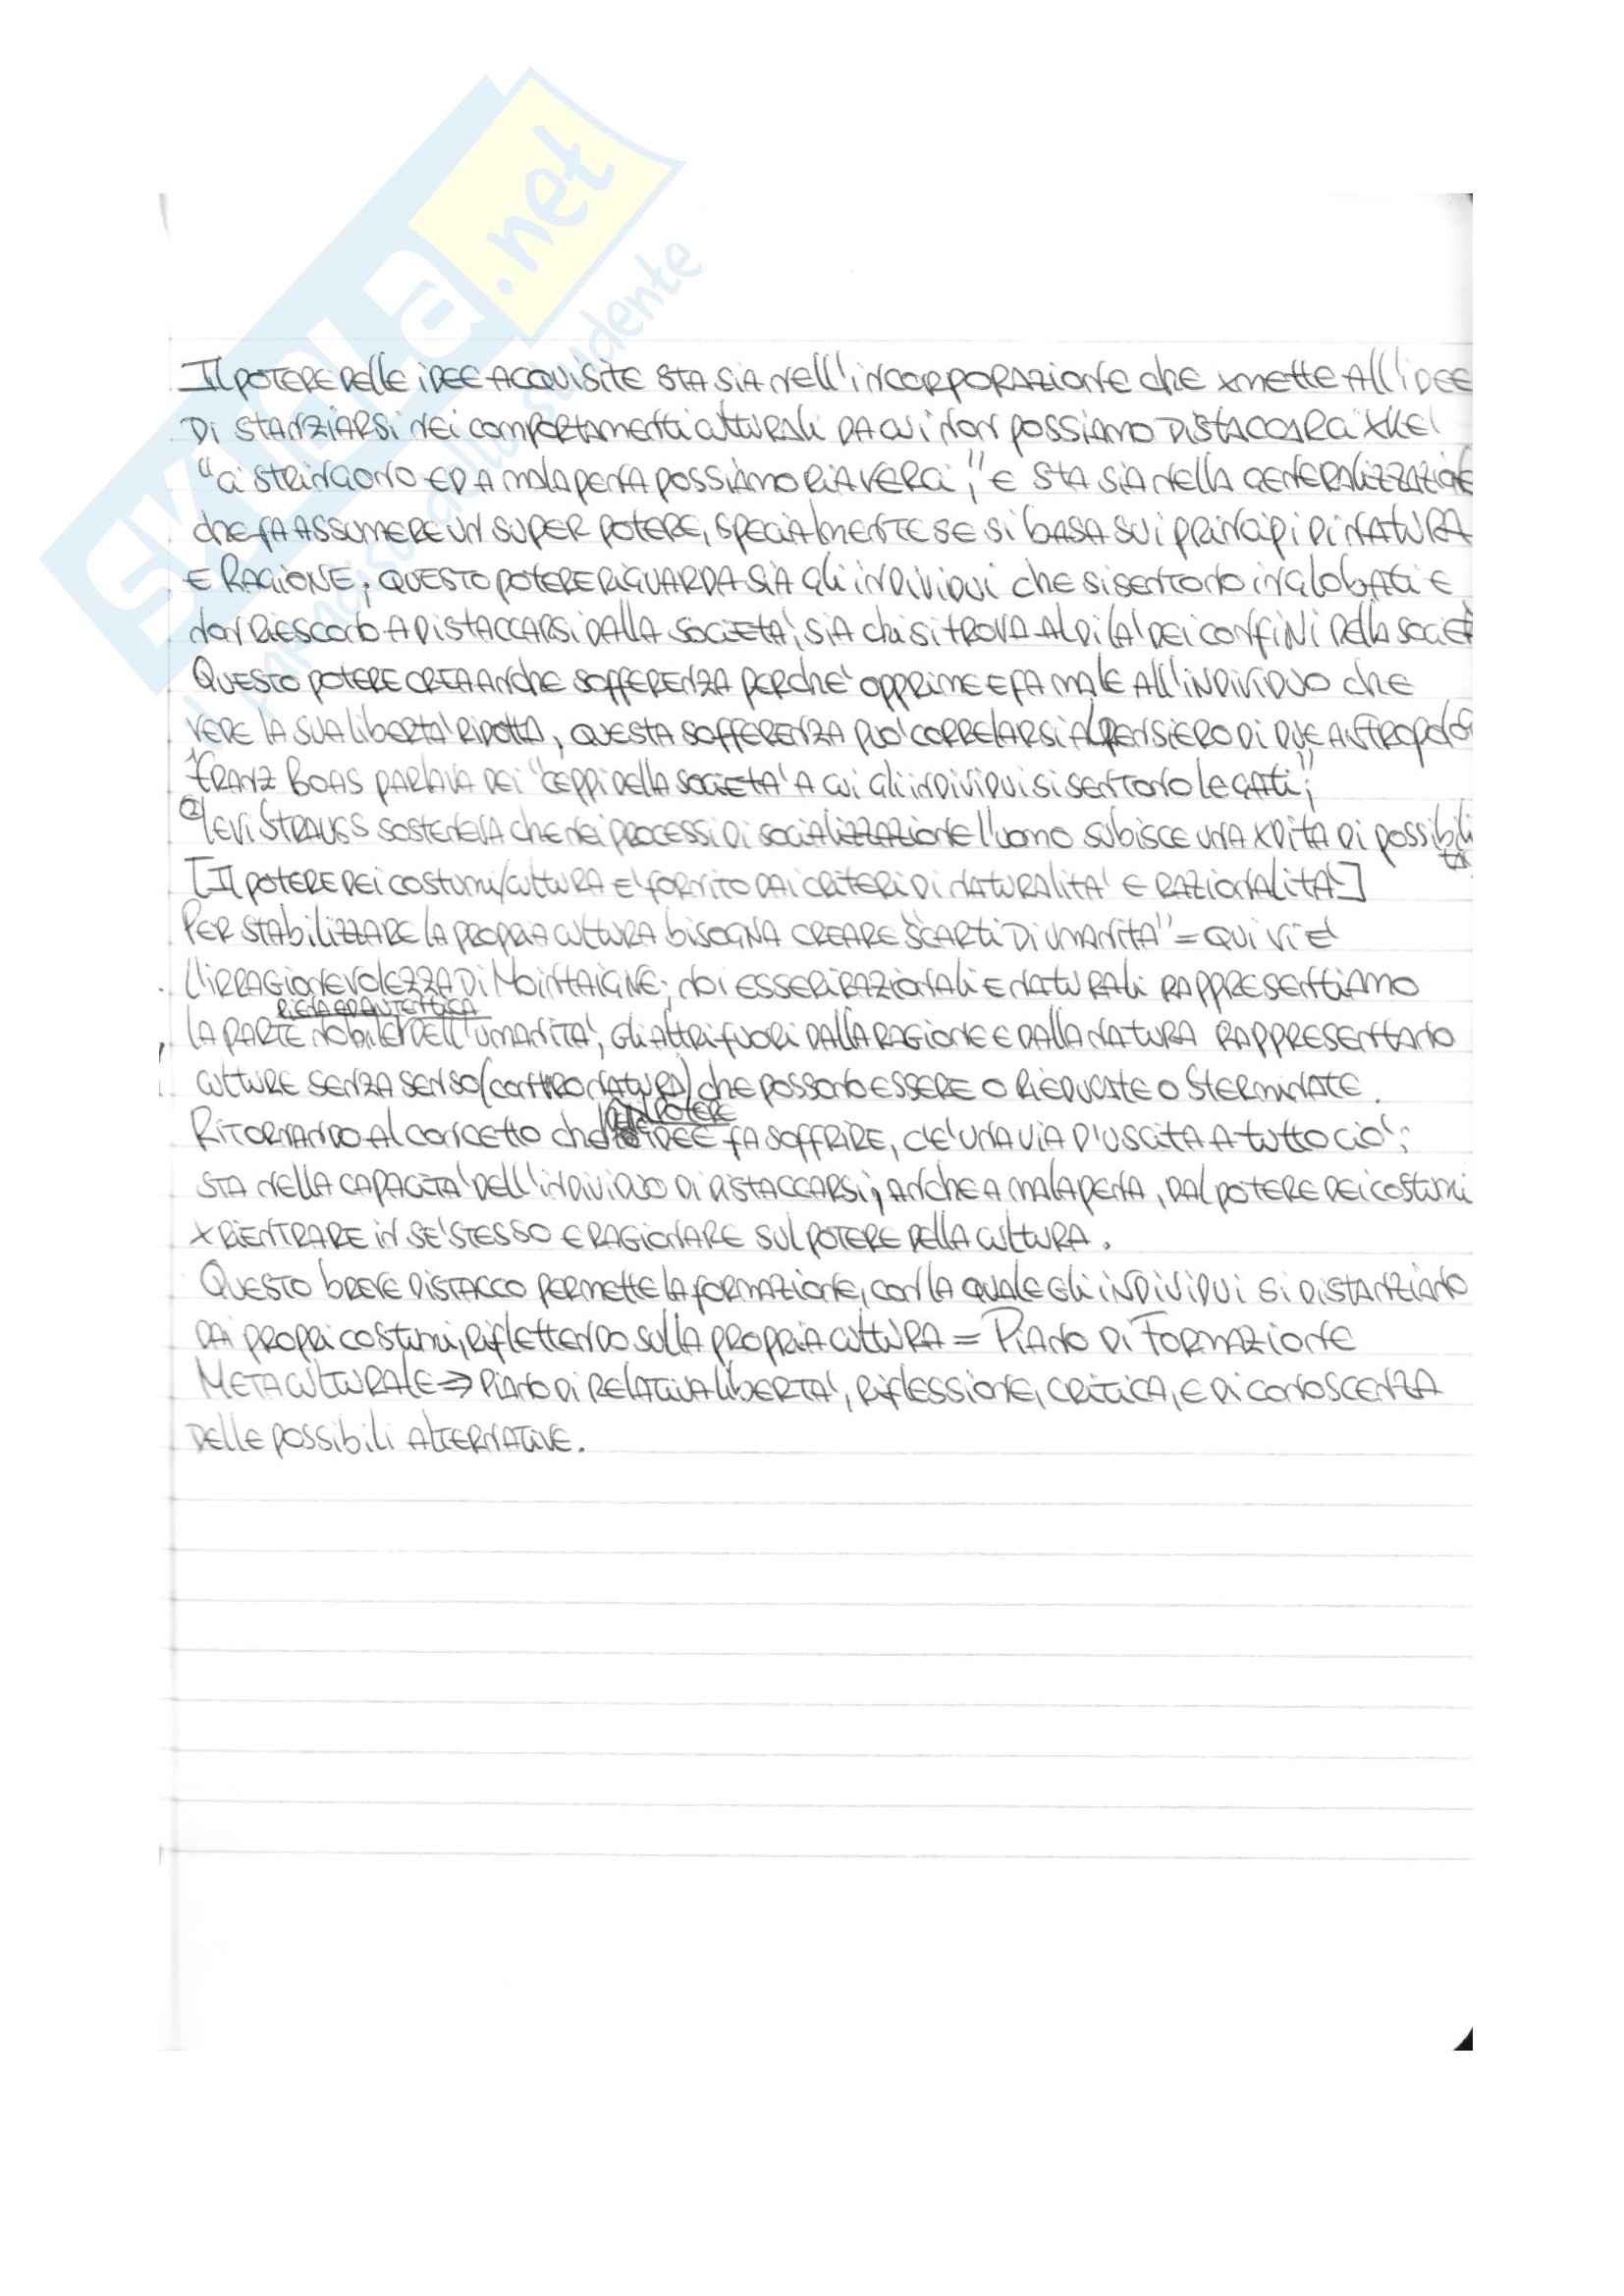 SKUOLA.net
il paradiso dello studente
Il potere delle idee acquisite sta sia nell'incorporazione che xmette all'idee
di stanziarsi nei comportamenti culturali da cui non possiamo distaccarci xkè
"ci stringono ed a malapena possiamo riaverci", e sta sia nella generalizzazione
che fa assumere un super potere, specialmente se si basa sui principi di natura
e ragione; questo potere riguarda sia gli individui che si sentono inglobati e
non riescono a distaccarsi dalla società, sia chi si trova al di là dei confini della società
Questo potere crea anche sofferenza perché opprime e fa male all'individuo che
vede la sua libertà ridotta, questa sofferenza può correlarsi al pensiero di due antropologi
1 Franz Boas parlava dei "ceppi della società a cui gli individui si sentono legati";
2 Levi Strauss sosteneva che nei processi di socializzazione l'uomo subisce una xdita di possibilità
[Il potere dei costumi/cultura è fornito dai criteri di naturalità e razionalità]
Per stabilizzare la propria cultura bisogna creare "scarti di umanità" = qui vi è
l'irragionevolezza di Mointaigne; noi esseri razionali e naturali rappresentiamo
piena ed autentica
la parte nobile dell'umanità, gli altri fuori dalla ragione e dalla natura rappresentano
culture senza senso (contro natura) che possono essere o rieducate o sterminate.
il potere
Ritornando al concetto che idee fa soffrire, c'è una via d'uscita a tutto ciò;
sta nella capacità dell'individuo di distaccarsi, anche a malapena, dal potere dei costumi
x rientrare in sé stesso e ragionare sul potere della cultura.
Questo breve distacco permette la formazione, con la quale gli individui si distanziano
dai propri costumi, riflettendo sulla propria cultura = Piano di Formazione
Metaculturale => piano di relativa libertà, riflessione, critica, e di conoscenza
delle possibili alternative.